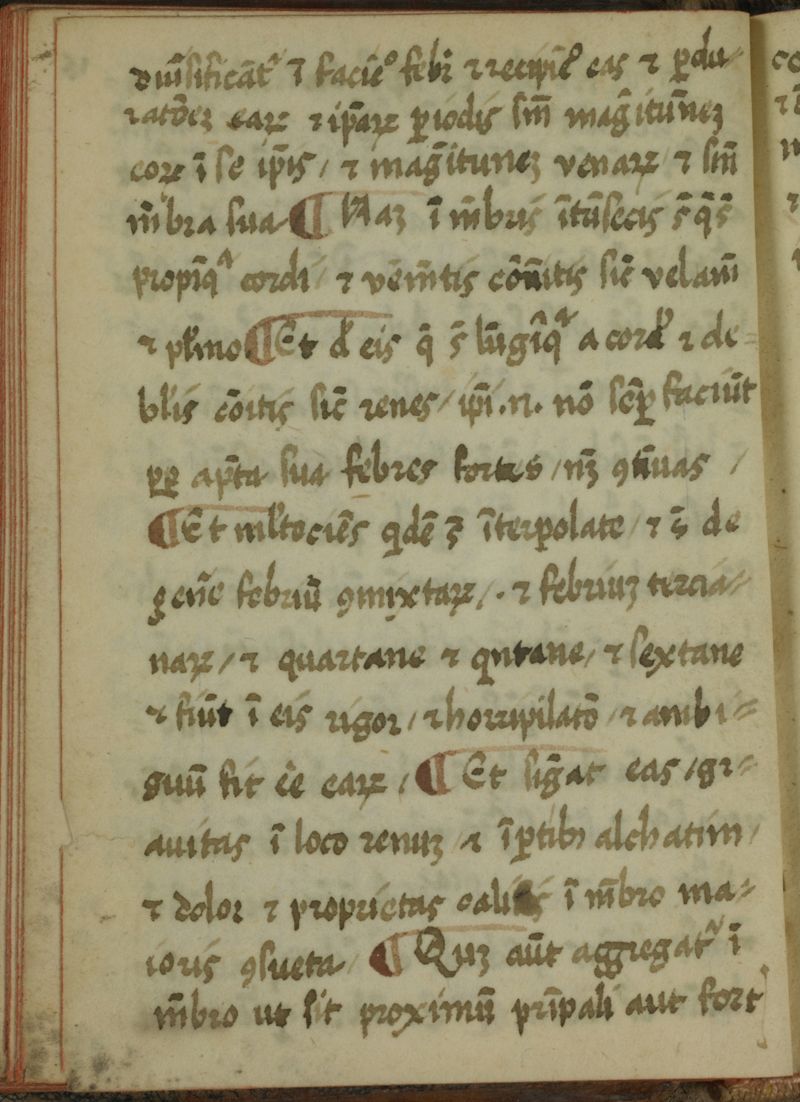 diūsificāt᷑ ī facie᷒ febr᷑ ⁊ recipie᷒ eas ⁊ ꝑdu/
ratōeꝫ eaꝝ ⁊ ip̄aꝝ ꝑiodis sm̄ mag̃itūneꝫ
coꝝ ī se ip̄is/ ⁊ mag̃ituneꝫ venaꝝ ⁊ sm̄
m̄bra sua ¶ Naꝫ ī m̄bris ītūsecis s̄ q̄ s̄
propīqᵃ cordi/ ⁊ vēm̄tis cōm̄itis sic̄ velam̄
⁊ pl̄mo ¶ Et d̄ eis q̄ s̄ lūgīqᵃ a cord᷒ ⁊ de=
bl̄is cōitis sic̄ renes/ ip̄i .n. nō sēꝑ faciūt
ꝓꝑ ap̄ta sua febres fortes /nꝫ ꝯtūuas /
¶ Et ml̄tociēs qͥdē ꝫ īterpolate/ ⁊ s̄ de
gen̄e febriū ꝯmixtaꝝ/. ⁊ febriuꝫ tercia=
naꝝ/ ⁊ quartane ⁊ qͥntane/ ⁊ sextane
⁊ fiūt ī eis rigor/ ⁊ horripilatō /⁊ ambi=
guū fit c̄e eaꝝ /¶ Et sig̃at eas /gr=
auitas ī loco renuꝫ ⁊ ī ꝑtibꝫ alchatim/
⁊ dolor ⁊ proprietas ī m̄bro ma=
ioris ꝯsueta/ ¶ Quꝫ aūt aggregat᷑ ī
m̄bro ut sit proximū prīpali aut fort